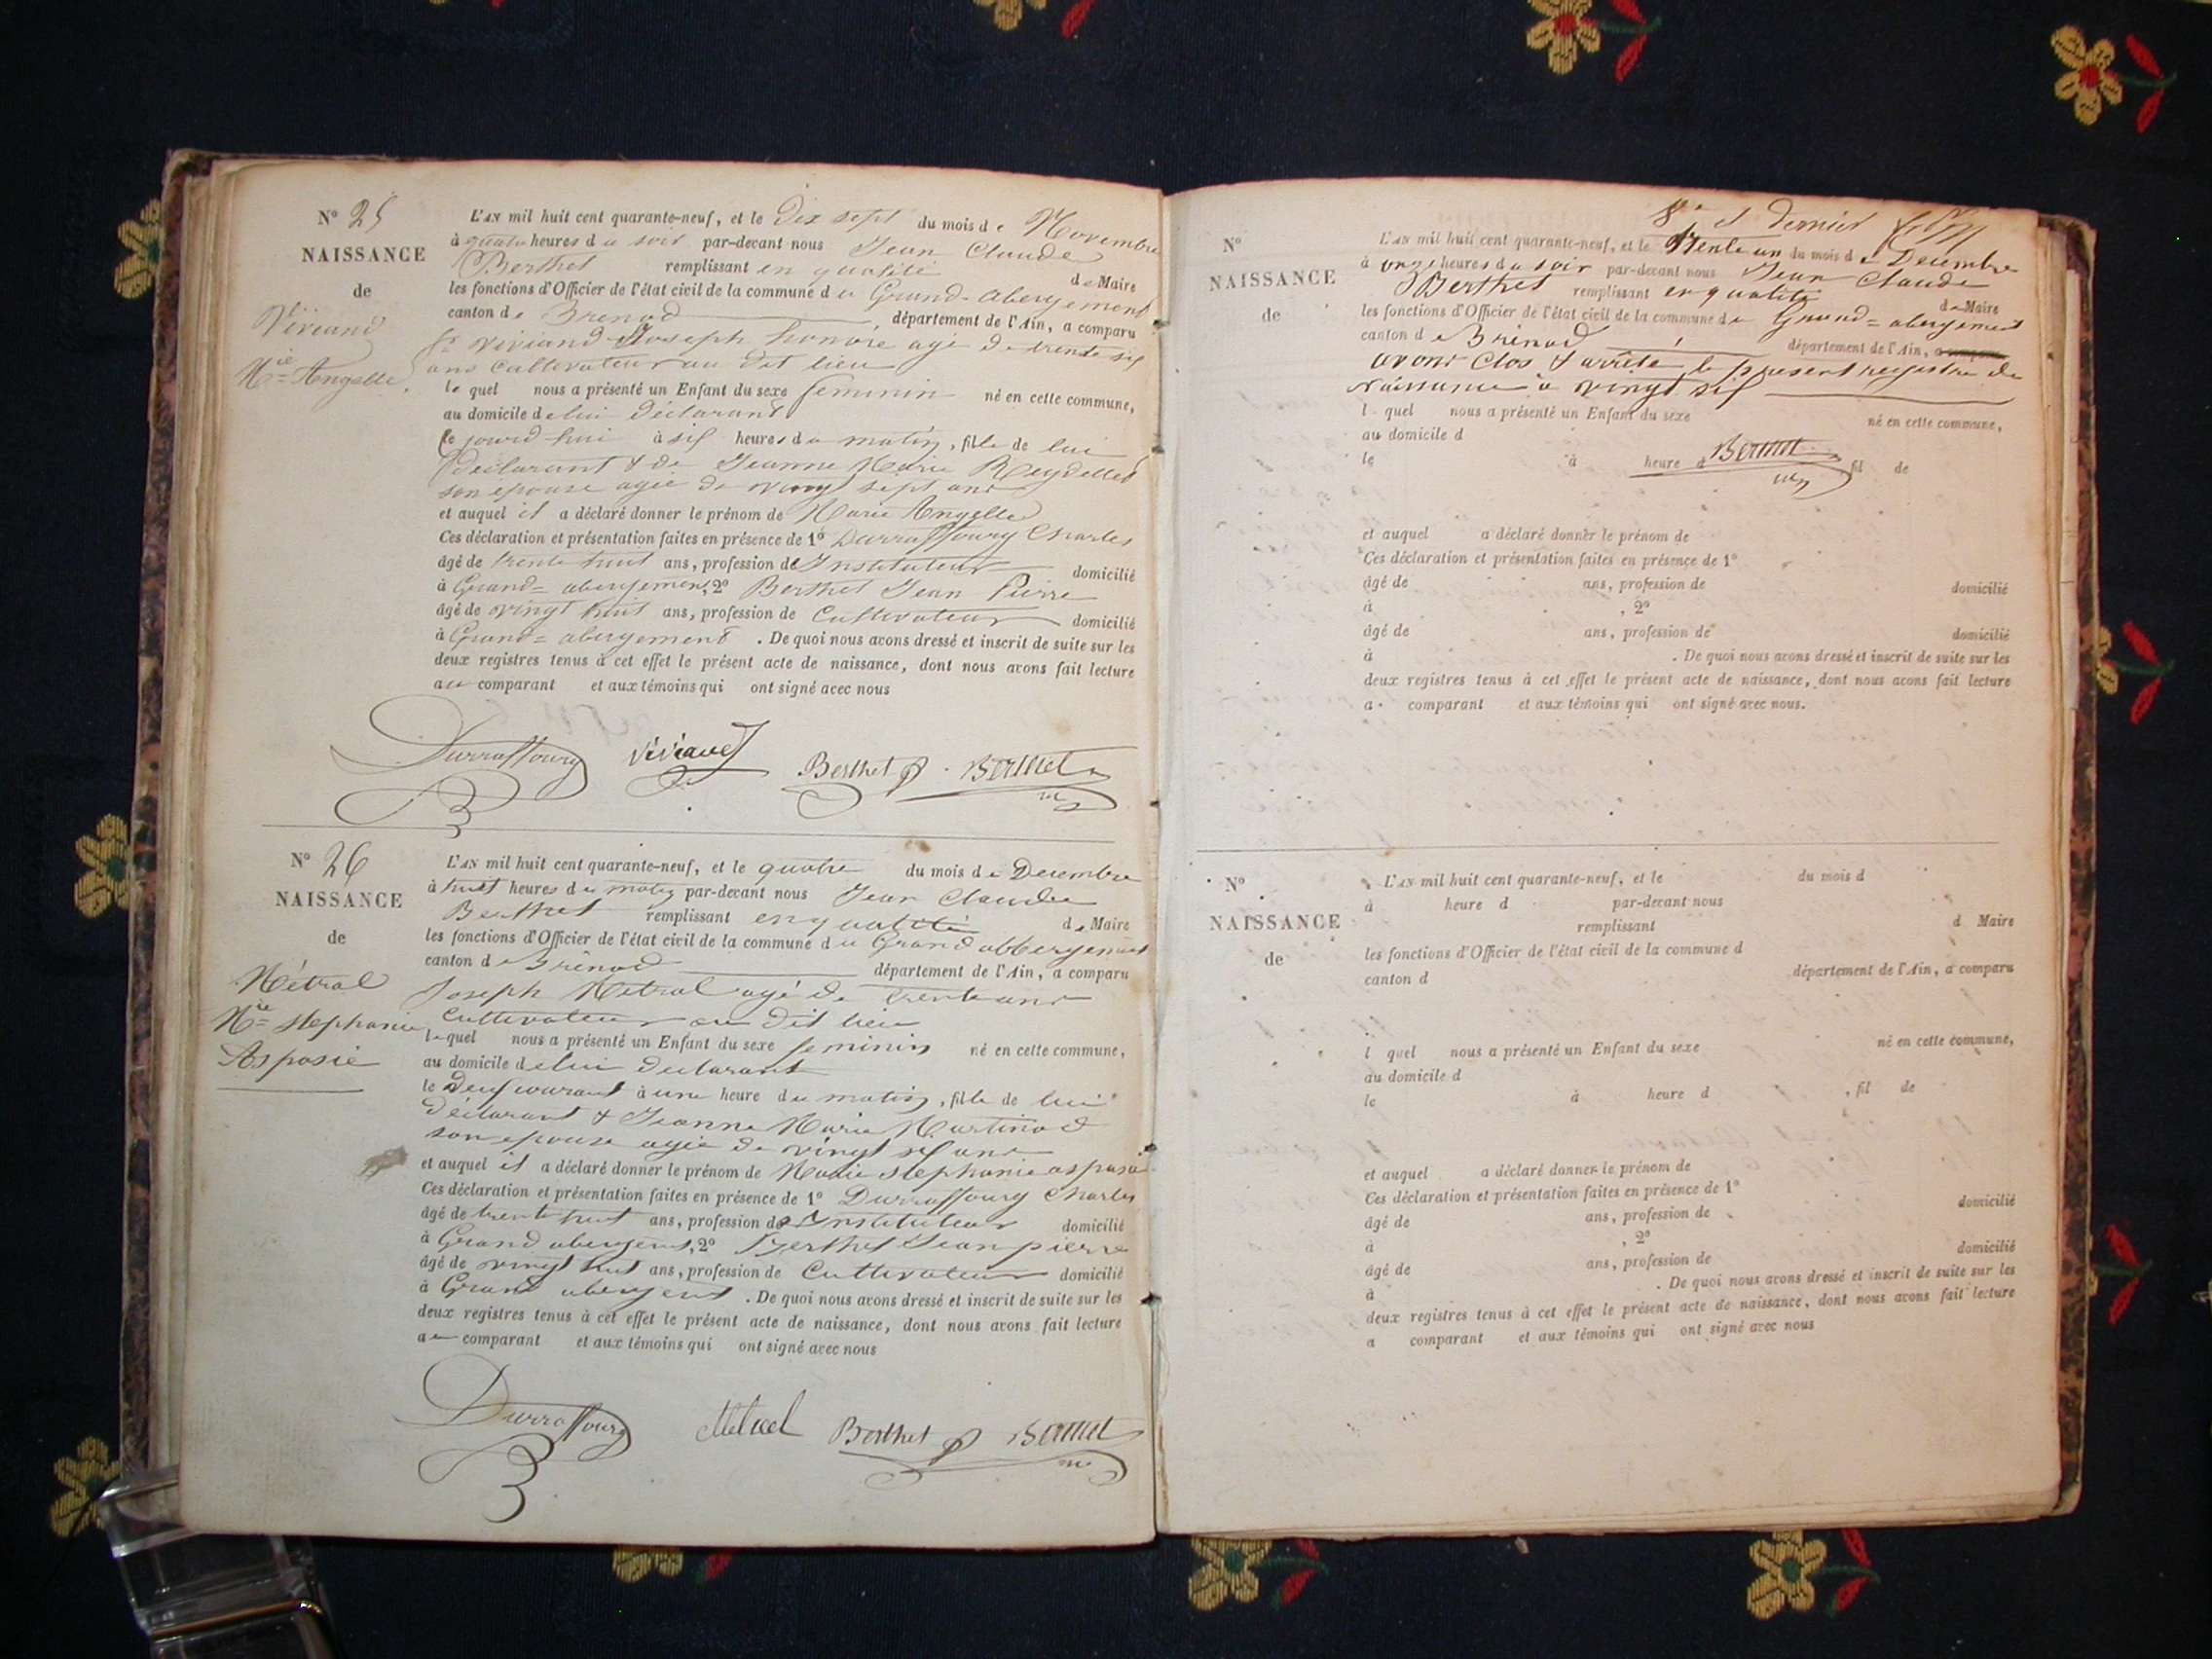 N° 25
NAISSANCE
de
Viviand
Mie Angelle
L'AN mil huit cent quarante-neuf, et le Dix sept du mois de Novembre
à quatre heures du soir par-devant nous Jean Claude
Berthet remplissant en qualité de Maire
les fonctions d'Officier de l'état civil de la commune du Grand-abergement
canton de Brenod département de l'Ain, a comparu
Sr Viviand Joseph honoré agé de trente six
ans cultivateur au dit lieu
lequel nous a présenté un Enfant du sexe feminin né en cette commune,
au domicile de lui déclarant
ce jourd'hui à six heures du matin, fille de lui
declarant & de Jeanne Marie Reydellet
son épouse agée de vingt sept ans
et auquel il a déclaré donner le prénom de Marie Angelle
Ces déclaration et présentation faites en présence de 1° Durraffourg Charles
âgé de trente huit ans, profession de Instituteur domicilié
à Grand=abergement, 2° Berthet Jean Pierre
âgé de vingt huit ans, profession de Cultivateur domicilié
à Grand=abergement. De quoi nous avons dressé et inscrit de suite sur les
deux registres tenus à cet effet le présent acte de naissance, dont nous avons fait lecture
au comparant et aux témoins qui ont signé avec nous
Durraffourg Viviand Berthet jp Berthet
N° 26
NAISSANCE
de
Métral
Mie stephanie
Aspasie
L'AN mil huit cent quarante-neuf, et le quatre du mois de Decembre
à huit heures du matin par-devant nous Jean Claude
Berthet remplissant en qualité de Maire
les fonctions d'Officier de l'état civil de la commune du Grand abbergement
canton de Brénod département de l'Ain, a comparu
Joseph Métral agé de trente ans
Cultivateur au dit lieu
lequel nous a présenté un Enfant du sexe feminin né en cette commune,
au domicile de lui declarant
le deux courant à une heure du matin, fille de lui
déclarant & Jeanne Marie Martinod
son epouse agée de vingt six ans
et auquel il a déclaré donner le prénom de Marie stephanie aspasie
Ces déclaration et présentation faites en présence de 1° Durraffourg Charles
âgé de trente huit ans, profession de Instituteur domicilié
à Grand abergement, 2° Berthet Jean pierre
âgé de vingt huit ans, profession de Cultivateur domicilié
à Grand abergement. De quoi nous avons dressé et inscrit de suite sur les
deux registres tenus à cet effet le présent acte de naissance, dont nous avons fait lecture
au comparant et aux témoins qui ont signé avec nous
Durraffourg Métral Berthet jp Berthet
8e et dernier
N°
NAISSANCE
de
L'AN mil huit cent quarante-neuf, et le trente un du mois de Decembre
à onze heures du soir par-devant nous Jean Claude
Berthet remplissant en qualité de Maire
les fonctions d'Officier de l'état civil de la commune du Grand=abergement
canton de Brénod département de l'Ain, a comparu
avons Clos & arrêté le present registre de
naissance à vingt six
l quel nous a présenté un Enfant du sexe né en cette commune,
au domicile d
le à heure d fil de
Berthet
et auquel a déclaré donner le prénom de
Ces déclaration et présentation faites en présence de 1°
âgé de ans, profession de domicilié
à , 2°
âgé de ans, profession de domicilié
à . De quoi nous avons dressé et inscrit de suite sur les
deux registres tenus à cet effet le présent acte de naissance, dont nous avons fait lecture
a comparant et aux témoins qui ont signé avec nous.
N°
NAISSANCE
de
L'AN mil huit cent quarante-neuf, et le du mois d
à heure d par-devant nous
remplissant d Maire
les fonctions d'Officier de l'état civil de la commune d
canton d département de l'Ain, a comparu
l quel nous a présenté un Enfant du sexe né en cette commune,
au domicile d
le à heure d , fil de
et auquel a déclaré donner le prénom de
Ces déclaration et présentation faites en présence de 1°
âgé de ans, profession de domicilié
à , 2°
âgé de ans, profession de domicilié
à . De quoi nous avons dressé et inscrit de suite sur les
deux registres tenus à cet effet le présent acte de naissance, dont nous avons fait lecture
a comparant et aux témoins qui ont signé avec nous